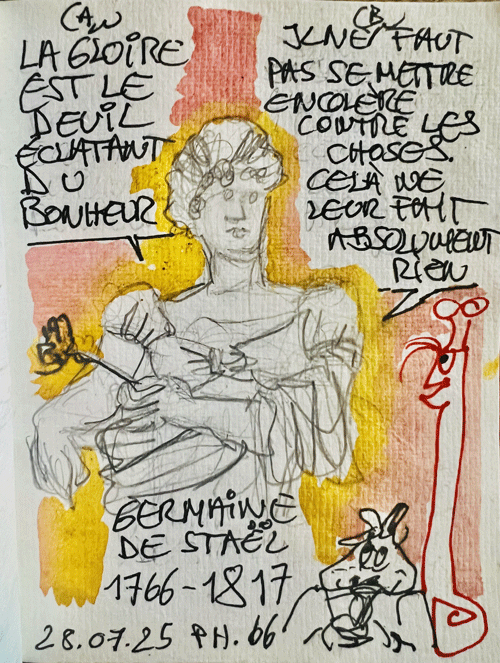 CA
LA GLOIRE
EST LE
DEUIL
ÉCLATANT
DU
BONHEUR
CB
IL NE FAUT
PAS SE METTRE
EN COLÈRE
CONTRE LES
CHOSES.
CELÀ NE
LEUR FAIT
ABSOLUMENT
RIEN
GERMAINE
DE STAËL
1766-1817
28.07.25 PH. 66